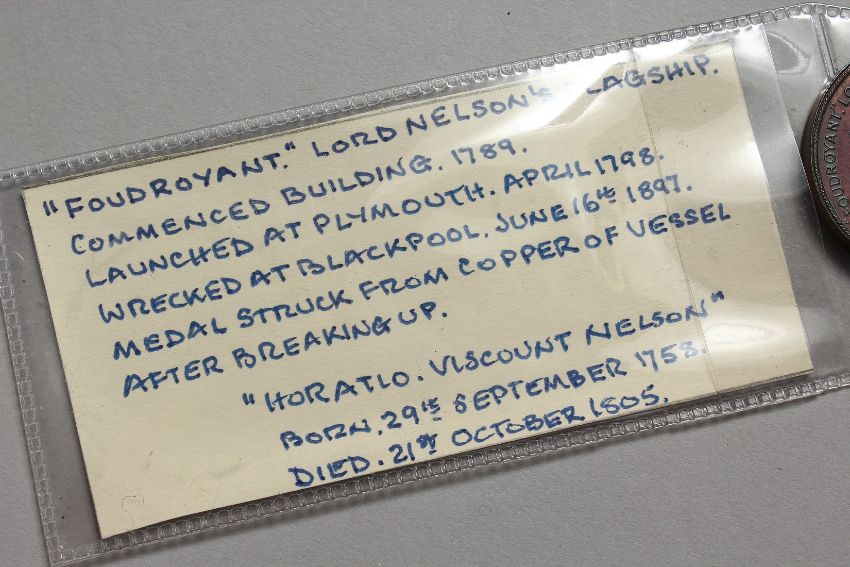 "FOUDROYANT." LORD NELSON'S FLAGSHIP.
COMMENCED BUILDING. 1789.
LAUNCHED AT PLYMOUTH. APRIL 1798.
WRECKED AT BLACKPOOL. JUNE 16TH 1897.
MEDAL STRUCK FROM COPPER OF VESSEL
AFTER BREAKING UP.
"HORATIO. VISCOUNT NELSON"
BORN. 29TH SEPTEMBER 1758.
DIED. 21ST OCTOBER 1805.
FOUDROYANT. LO